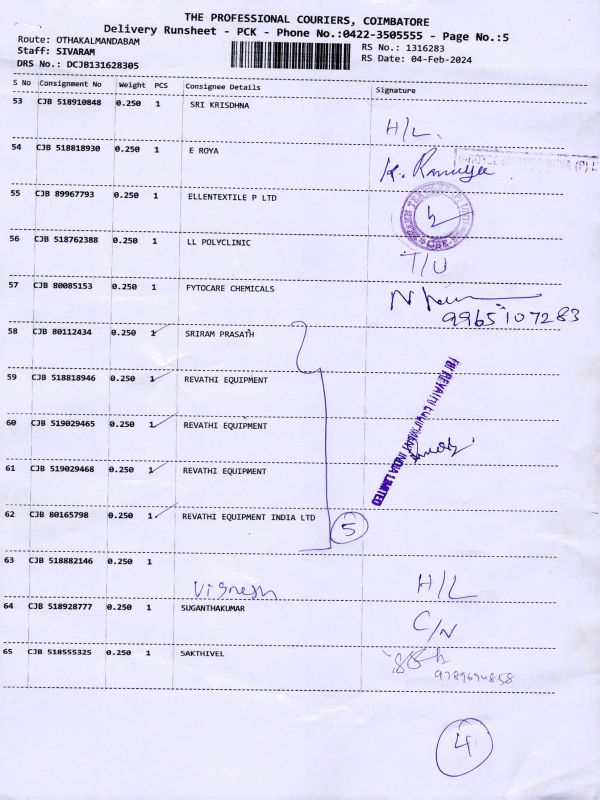 THE PROFESSIONAL COURIERS, COIMBATORE
Delivery Runsheet - PCK - Phone No.:0422-3505555 - Page No.:5
Route: OTHAKALMANDABAM
RS No.: 1316283
Staff: SIVARAM
RS Date: 04-Feb-2024
DRS No.: DCJB131628305
S No Consignment No Weight PCS Consignee Details Signature
53 CJB 518910848 0.250 1 SRI KRISDHNA
H/L.
54 CJB 518818930 0.250 1 E ROYA
55 CJB 89967793 0.250 1 ELLENTEXTILE P LTD
56 CJB 518762388 0.250 1 LL POLYCLINIC
T/U
57 CJB 80085153 0.250 1 FYTOCARE CHEMICALS
9965107283
58 CJB 80112434 0.250 1 SRIRAM PRASATH
59 CJB 518818946 0.250 1 REVATHI EQUIPMENT
60 CJB 519029465 0.250 1 REVATHI EQUIPMENT
61 CJB 519029468 0.250 1 REVATHI EQUIPMENT
62 CJB 80165798 0.250 1 REVATHI EQUIPMENT INDIA LTD
5
63 CJB 518882146 0.250 1
Vignesh H/L
64 CJB 518928777 0.250 1 SUGANTHAKUMAR
C/N
65 CJB 518555325 0.250 1 SAKTHIVEL
4